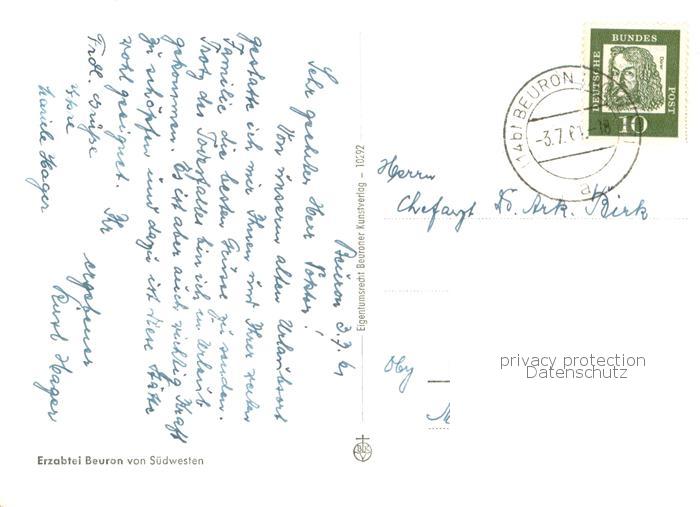 Beuron 3.7.61
Sehr geehrter Herr Doktor!
Von unserem alten Urlaubsort
gestatte ich mir Ihnen und Ihrer werten
Familie die besten Grüsse zu senden.
Trotz des Todesfalles bin ich in Urlaub
gekommen. Es ist aber auch richtig Kraft
zu schöpfen und dazu ist diese Stätte
wohl geeignet. Ihr
ergebener
Kurt Hager
Frdl. Grüße
Ihre
Mariele Hager
Erzabtei Beuron von Südwesten
Eigentumsrecht Beuroner Kunstverlag – 10292
DEUTSCHE
BUNDES
POST
Dürer
10
(14b) BEURON
-3.7.61.-18
a
Herrn
Chefarzt Dr. Ark. Birk
privacy protection
Datenschutz